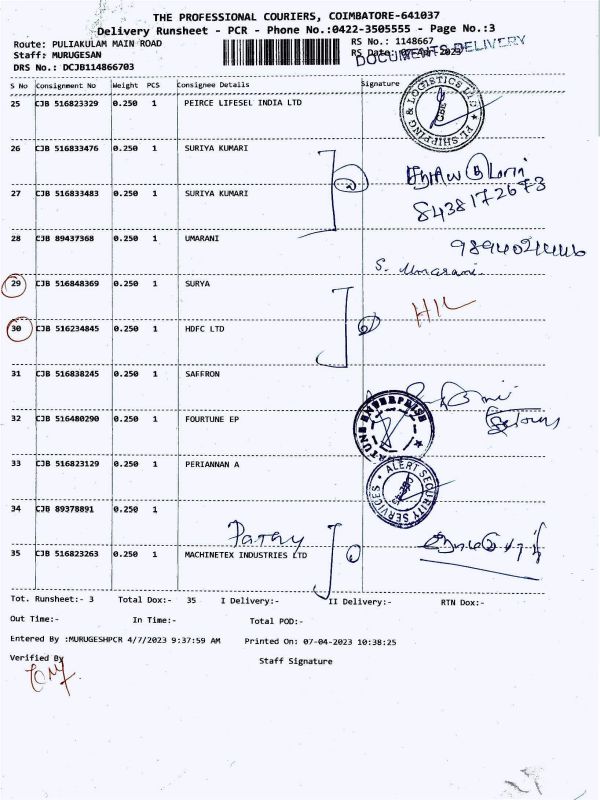 THE PROFESSIONAL COURIERS, COIMBATORE-641037
Delivery Runsheet - PCR - Phone No.:0422-3505555 - Page No.:3
Route: PULIAKULAM MAIN ROAD
RS No.: 1148667
Staff: MURUGESAN
RS Date: 07-Apr-2023
DOCUMENTS DELIVERY
DRS No.: DCJB114866703
S No Consignment No Weight PCS Consignee Details Signature
25 CJB 516823329 0.250 1 PEIRCE LIFESEL INDIA LTD
& LOGISTICS
SHIPPING
CBE
26 CJB 516833476 0.250 1 SURIYA KUMARI
27 CJB 516833483 0.250 1 SURIYA KUMARI
8438172673
28 CJB 89437368 0.250 1 UMARANI
S. Umarani
29 CJB 516848369 0.250 1 SURYA
30 CJB 516234845 0.250 1 HDFC LTD
31 CJB 516838245 0.250 1 SAFFRON
32 CJB 516480290 0.250 1 FOURTUNE EP
ENTERPRISE
33 CJB 516823129 0.250 1 PERIANNAN A
ALERT SECURITY SERVICES
34 CJB 89378891 0.250 1
35 CJB 516823263 0.250 1 MACHINETEX INDUSTRIES LTD
Tot. Runsheet:- 3 Total Dox:- 35 I Delivery:- II Delivery:- RTN Dox:-
Out Time:- In Time:- Total POD:-
Entered By :MURUGESHPCR 4/7/2023 9:37:59 AM Printed On: 07-04-2023 10:38:25
Verified By Staff Signature